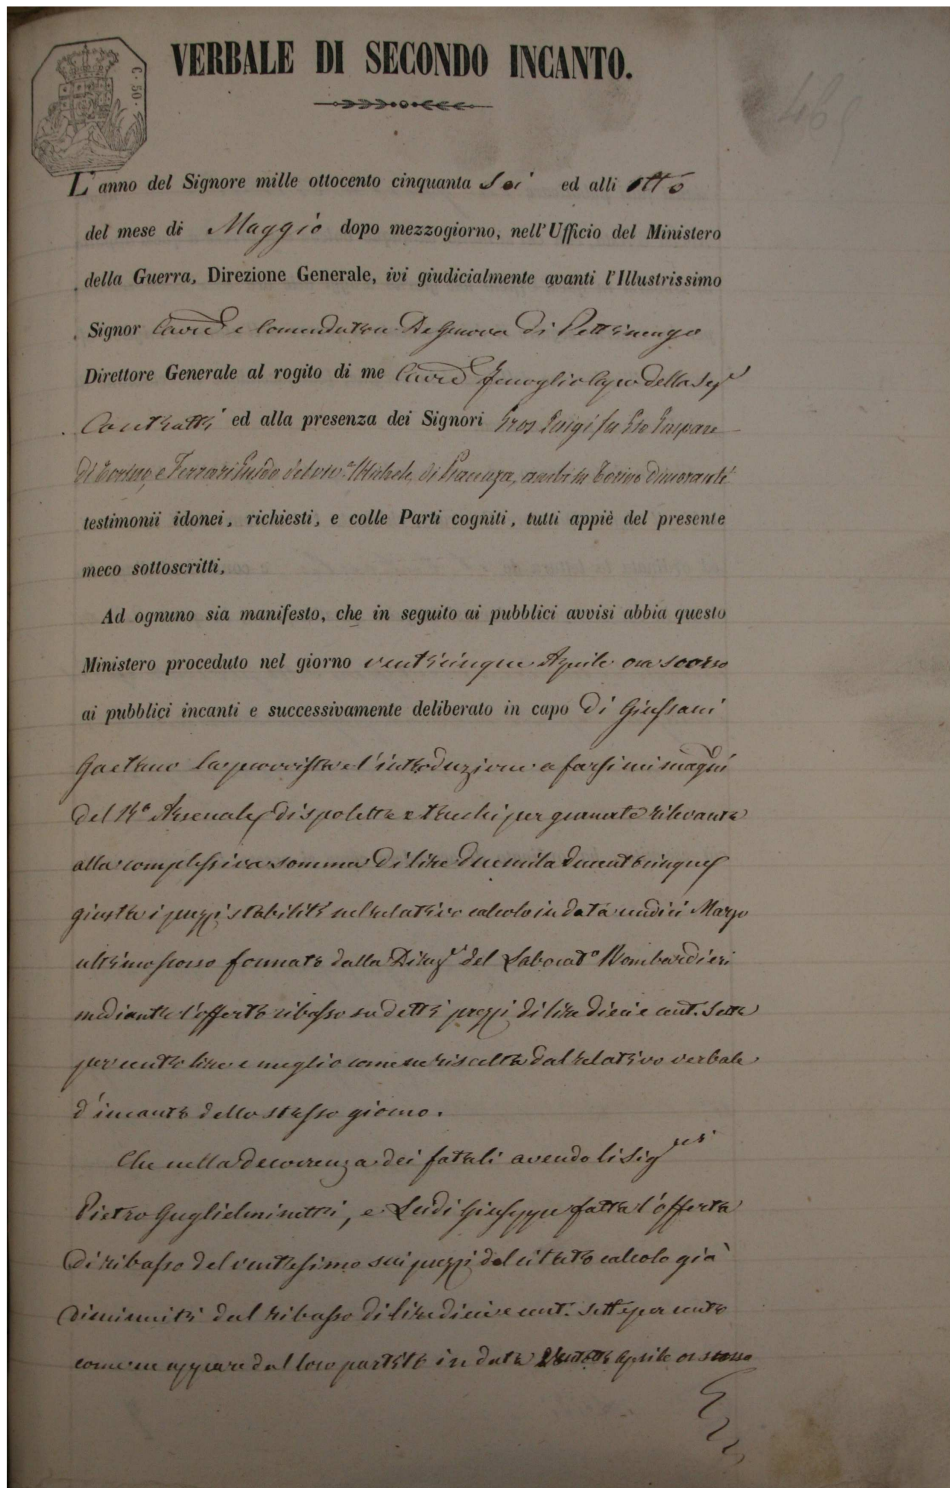 C. 50.
VERBALE DI SECONDO INCANTO.
L'anno del Signore mille ottocento cinquanta Sei ed alli otto
del mese di Maggio dopo mezzogiorno, nell'Ufficio del Ministero
della Guerra, Direzione Generale, ivi giudicialmente avanti l'Illustrissimo
Signor Cav.e e Comendatore De Genova di Pettinengo
Direttore Generale al rogito di me Cav.e Fenoglio Capo della Sez.e
Contratti ed alla presenza dei Signori Luigi fu Gaspare
di Torino, e Ferrari Guido del viv.e Michele, di Piacenza, ambi in Torino dimoranti
testimonii idonei, richiesti, e colle Parti cogniti, tutti appiè del presente
meco sottoscritti,
Ad ognuno sia manifesto, che in seguito ai pubblici avvisi abbia questo
Ministero proceduto nel giorno venticinque Aprile ora scorso
ai pubblici incanti e successivamente deliberato in capo di Giussani
Gaetano la provvista e l'introduzione a farsi nei magni
del R.o Arsenale, di spolette e tacchi per granate rilevante
alla complessiva somma di lire duemila duecentocinque
giusta i prezzi stabiliti nel relativo calcolo in data undici Marzo
ultimo scorso formato dalla Direz.e del Laborat.o Bombardieri
mediante l'offerto ribasso su detti prezzi di lire dieci e cent. Sette
per cento lire e meglio come ne risulta dal relativo verbale
d'incanto dello stesso giorno.
Che nella decorrenza dei fatali avendo li Sig.ri
Pietro Guglielminetti, e Leidi Giuseppe fatta l'offerta
di ribasso del ventesimo sui prezzi del citato calcolo già
diminuiti del ribasso di lire dieci e cent. Sette per cento
come ne appare dal loro partito in data Aprile or scorso